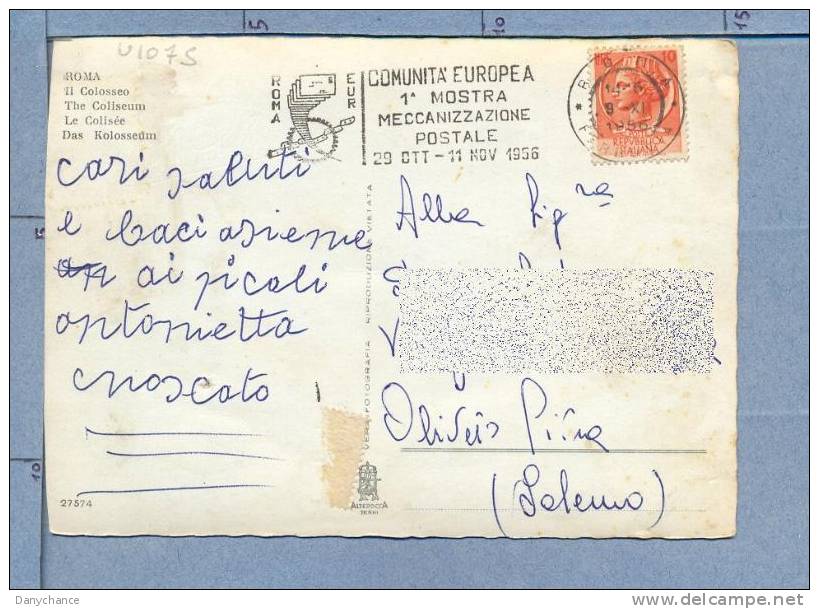 5
10
15
U1075
ROMA
Il Colosseo
The Coliseum
Le Colisée
Das Kolosseum
ROMA
EUR
COMUNITA' EUROPEA
1ª MOSTRA
MECCANIZZAZIONE
POSTALE
29 OTT - 11 NOV 1956
10
9 - XI
REPVBBLICA
ITALIANA
cari saluti
e baci asieme
ai picoli
antonietta
moscato
Alla Sigra
(Salerno)
VERA FOTOGRAFIA RIPRODUZIONE VIETATA
ALTEROCCA
TERNI
27574
5
10
Danychance
www.delcampe.net